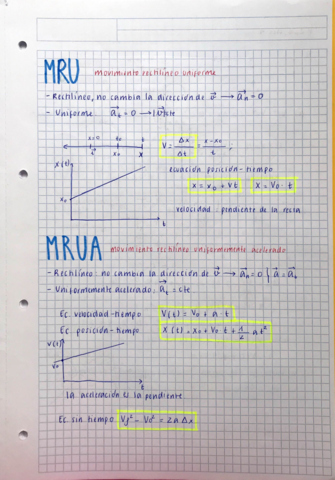 MRU movimiento rectilíneo uniforme
- Rectilíneo, no cambia la dirección de v⃗ → a⃗n = 0
- Uniforme a⃗t = 0 → |v⃗| cte
x=0 x₀ t
t⃗ x₀ x
V = Δx/Δt = x-x₀/t ;
x(t)
ecuación posición-tiempo
x = x₀ + vt x = v₀ · t
x₀
velocidad: pendiente de la recta
t
MRUA movimiento rectilíneo uniformemente acelerado
- Rectilíneo: no cambia la dirección de v⃗ → a⃗n = 0 } a⃗ = a⃗t
- Uniformemente acelerado: a⃗t = cte
Ec. velocidad-tiempo V(t) = V₀ + a t
Ec. posición-tiempo X(t) = x₀ + V₀ t + 1/2 a t²
V(t)
V₀
t
la aceleración es la pendiente.
Ec. sin tiempo Vf² - V₀² = 2a Δx